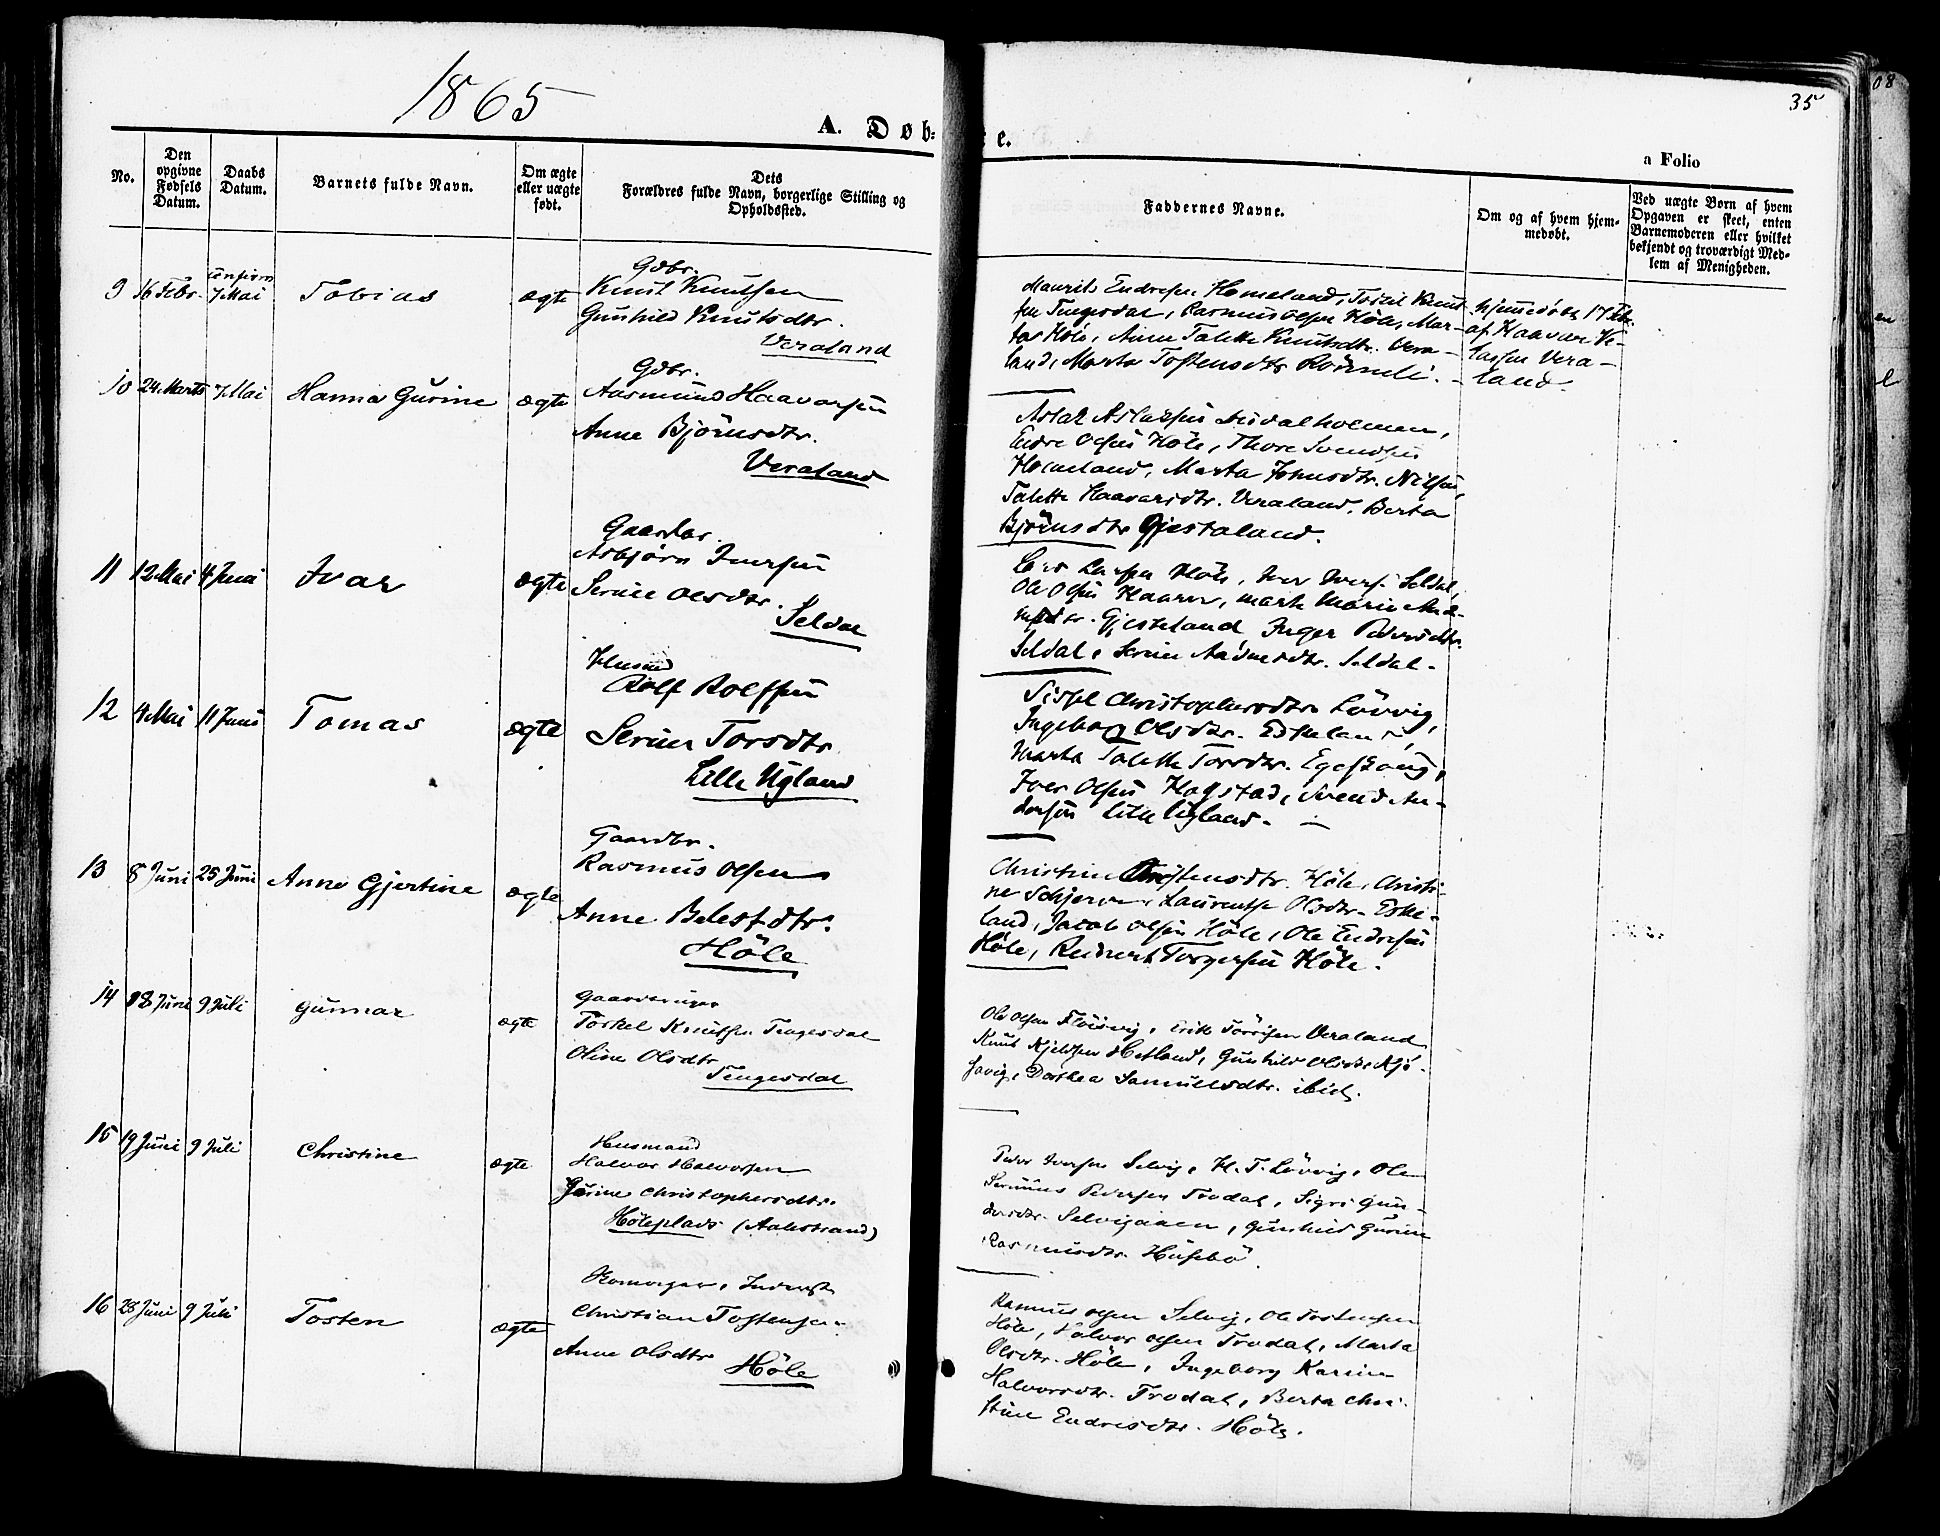 1865
A. Døb-
e.
35
08
a Folio
No.
Den opgivne Fødsels Datum.
Daabs Datum.
Barnets fulde Navn.
Om ægte eller uægte født.
Dets Forældres fulde Navn, borgerlige Stilling og Opholdssted.
Faddernes Navne.
Om og af hvem hjemmedøbt.
Ved uægte Børn af hvem Opgaven er skeet, enten Barnemoderen eller hvilket bekjendt og troværdigt Medlem af Menigheden.
9 16 Febr. 7 Mai Tobias ægte
Gdbr.
Knut Knutsen
Gunhild Knutsdtr.
Veraland
Maurits Endresen Homeland, Torkil Knut-
sen Tengesdal, Rasmus Olsen Höle, Mar-
ta Höle, Anne Talette Knutsdtr. Vera-
land, Marta Tostensdtr
hjemmedöbt 17 Feb.
af Haavar
Vera-
land
10 24 Marts 7 Mai Hanna Gurine ægte
Gdbr.
Aasmund Haavarsen
Anne Björnsdtr.
Veraland
Aslak Aslaksen
Endre Olsen Höle, Thore Svendsen
Homeland, Marta Johnsdtr.
Talette Haavarsdtr. Veraland, Berta
Björnsdtr Gjestaland.
11 12 Mai 4 Juni Ivar ægte
Gaardbr.
Asbjørn Iversen
Serine Olsdtr.
Seldal
Lars Larsen Höle, Iver Ivers. Seldal,
Ole Olsen, Marte Marie
Gjesteland, Inger Pedersdtr.
Seldal, Serine Aadnesdtr. Seldal.
12 4 Mai 11 Juni Tomas ægte
Husmd
Rolf Rolfsen
Serine Torsdtr.
Lille Ugland
Sissel Christophersdtr Lövvig,
Ingeborg Olsdtr. Eskeland,
Marta Talette Torsdtr. Egeskoug,
Iver Olsen Hogstad, Svend An-
dersen lille Ugland.
13 8 Juni 25 Juni Anne Gjertine ægte
Gaardbr.
Rasmus Olsen
Anne Belestdtr.
Höle
Christine Höle, Christi-
ne Schjerve, Laurentse Olsdtr. Eske-
land, Jacob Olsen Höle, Ole Endresen
Höle, Reinert Torgersen Höle.
14 18 Juni 9 Juli Gunnar ægte
Gaardbruger
Torkel Knutsen Tengesdal
Oline Olsdtr
Tengesdal
Ole Olsen, Erik Veraland
Knut Kjeldsen Hetland, Gunhild Olsdtr.
Dorthea Samuelsdtr. ibid.
15 19 Juni 9 Juli Christine ægte
Husmand
Halvor Halvorsen
Gurine Christophersdtr.
Höleplads (Aalestrand)
Peder Iversen Selvig, H. T. Lövvig, Ole
Severinus Pedersen Trodal, Sigri Gun-
dersdtr. Selvigaaen, Gunhild Gurine
Rasmusdtr. Husebö.
16 28 Juni 9 Juli Tosten ægte
Skomager, Inderst
Christian Tostensen
Anne Olsdtr
Höle
Rasmus Olsen Selvig, Ole Tostensen
Höle, Halvor Olsen Trodal, Marta
Olsdtr. Höle, Ingeborg Karine
Halvorsdtr. Trodal, Berta Chri-
stine Endresdtr. Höle.